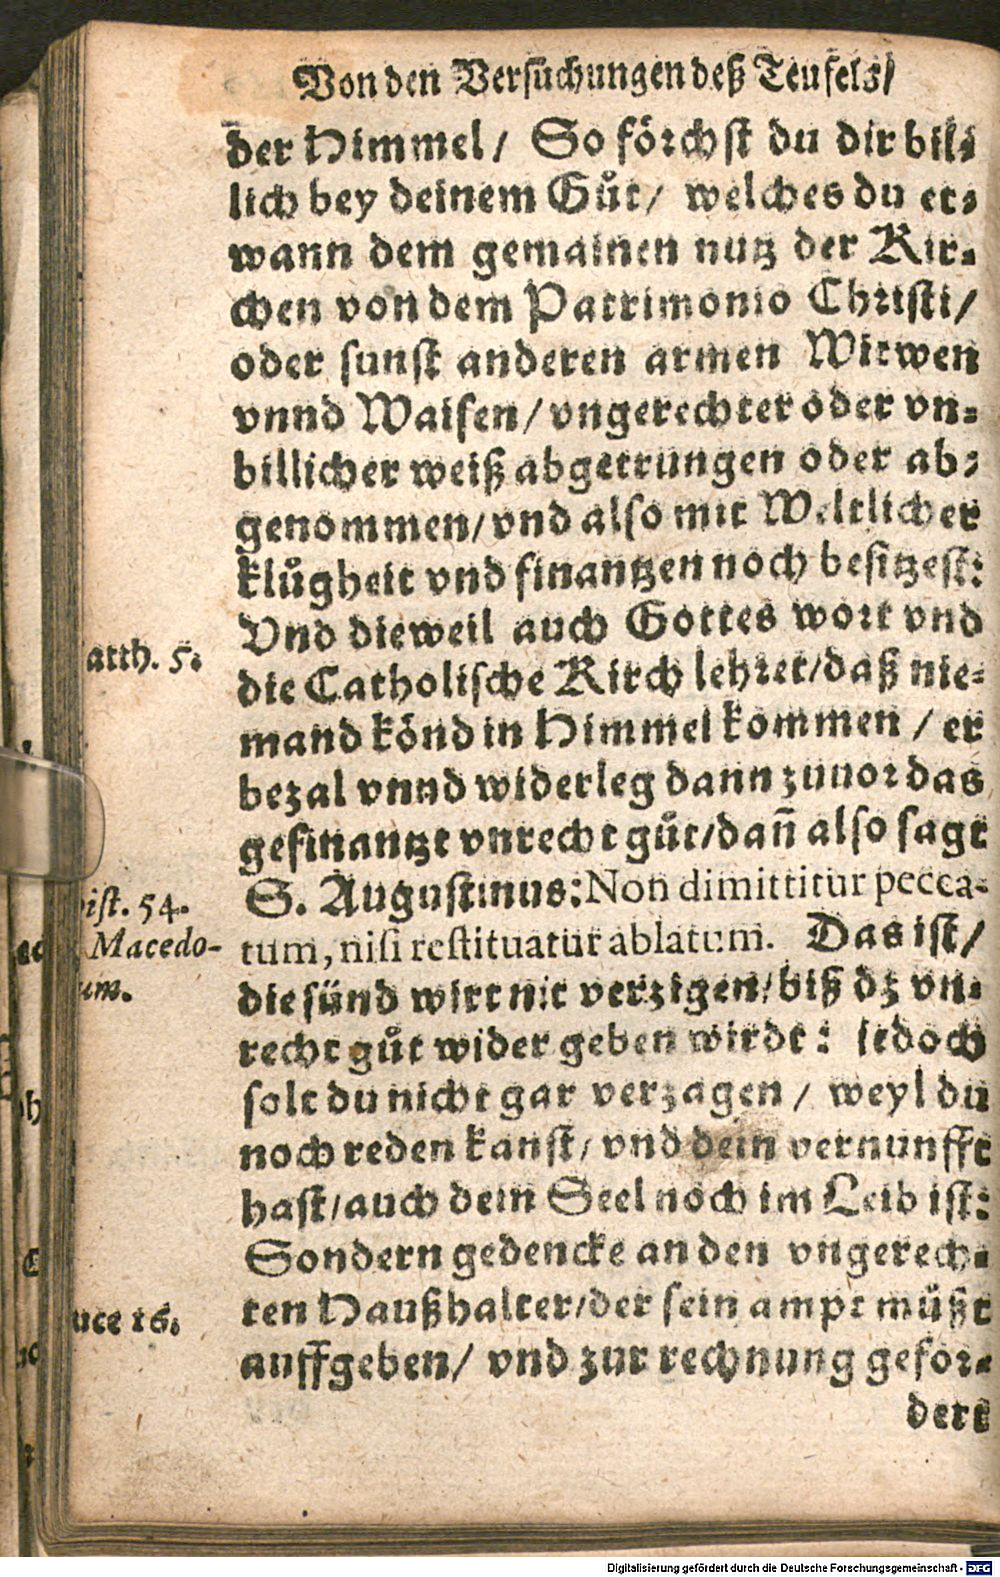 Von den Versuchungen deß Teufels/
der Himmel/ So förchst du dir bil⸗
lich bey deinem Gůt/ welches du et⸗
wann dem gemainen nutz der Kir⸗
chen von dem Patrimonio Christi/
oder sunst anderen armen Witwen
vnnd Waisen/ vngerechter oder vn⸗
billicher weiß abgetrungen oder ab⸗
genommen/ vnd also mit Weltlicher
klůgheit vnd finantzen noch besitzest:
Vnd dieweil auch Gottes wort vnd
atth. 5.
die Catholische Kirch lehret/ daß nie⸗
mand könd in Himmel kommen / er
bezal vnnd widerleg dann zuuor das
gefinantzt vnrecht gůt/ dañ also sagt
S. Augustinus: Non dimittitur pecca-
pist. 54.
tum, nisi restituatur ablatum. Das ist/
Macedo-
die sünd wirt nit verzigen/ biß dz vn⸗
um.
recht gůt wider geben wirdt: jedoch
solt du nicht gar verzagen / weyl du
noch reden kanst/ vnd dein vernunfft
hast/ auch dein Seel noch im Leib ist:
Sondern gedencke an den vngerech⸗
ten Haußhalter/ der sein ampt můßt
uce 16.
auffgeben/ vnd zur rechnung gefor⸗
dert
Digitalisierung gefördert durch die Deutsche Forschungsgemeinschaft - DFG